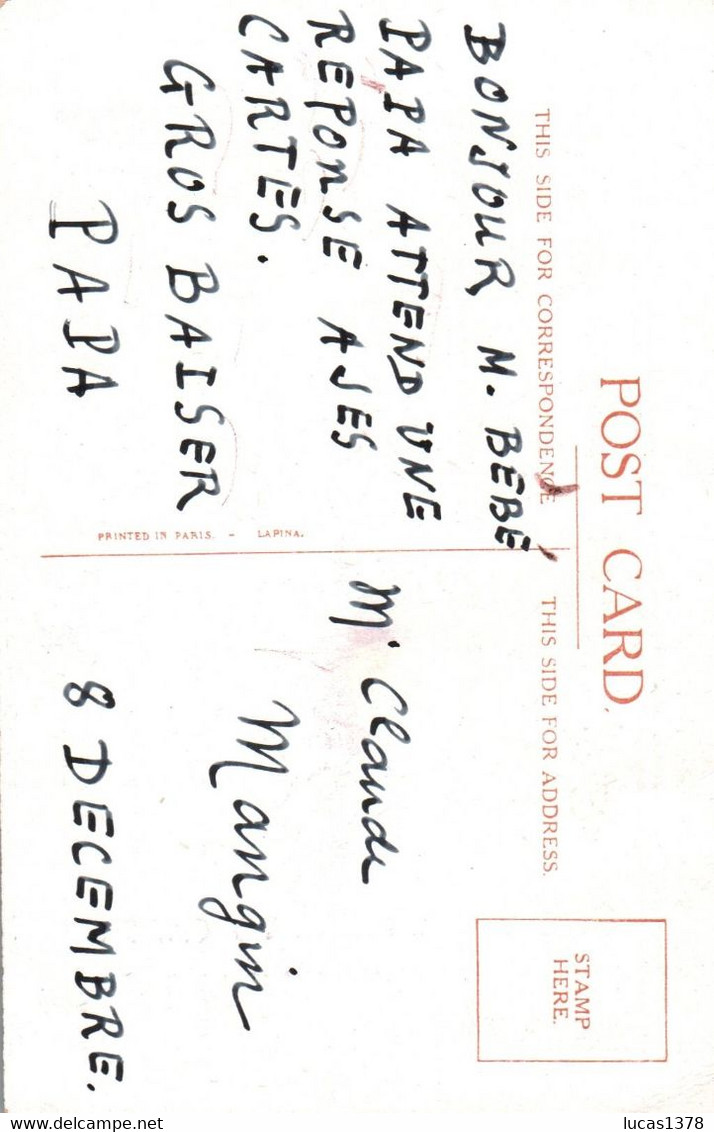 POST CARD.
THIS SIDE FOR CORRESPONDENCE
THIS SIDE FOR ADDRESS.
STAMP
HERE.
BONJOUR M. BEBE,
PAPA ATTEND UNE
REPONSE A SES
CARTES.
GROS BAISER
PAPA
PRINTED IN PARIS. - LAPINA.
Mr Claude
Mangin
8 DECEMBRE.
Delcampe.net
lucas1378